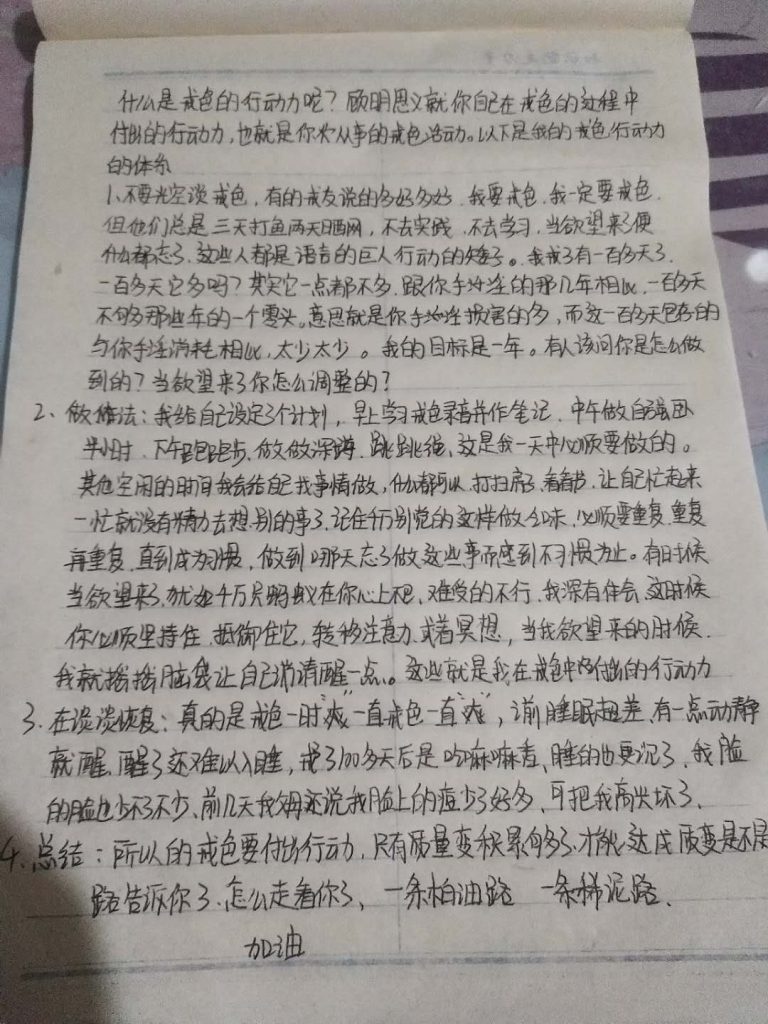 什么是戒色的行动力呢？顾明思义就你自己在戒色的过程中
付出的行动力，也就是你欢从事的戒色活动。以下是我的戒色行动力
的体系
1、不要光空谈戒色，有的戒友说的多好多好，我要戒色，我一定要戒色，
但他们总是三天打鱼两天晒网，不去实践、不去学习，当欲望来了便
什么都忘了，这些人都是语言的巨人行动的矮子。我戒了有一百多天了，
一百多天它多吗？其实它一点都不多，跟你手淫的那几年相比，一百多天
不够多那些年的一个零头。意思就是你手淫损害的多，而这一百多天包存的
与你手淫消耗相比，太少太少。我的目标是一年。有人该问你是怎么做
到的？当欲望来了你怎么调整的？
2、做修法：我给自己设定了个计划，早上学习戒色录音并作笔记，中午做自强
半小时，下午跑跑步、做做深蹲、跳跳绳，这是我一天中必须要做的。
其他空闲的时间我会给自己找事情做，什么都可以，打扫房子、看看书，让自己忙起来
一忙就没有精力去想别的事了，记住千万别觉的这样做会味，必须要重复，重复
再重复，直到成为习惯，做到哪天忘了做这些事而感到不习惯为止。有时候
当欲望来了，犹如千万只蚂蚁在你心上爬，难受的不行，我深有体会，这时候
你必须坚持住，抵御住它，转移注意力或者冥想，当我欲望来的时候，
我就摇摇脑袋让自己清清醒一点。这些就是我在戒色中所付出的行动力
3、在谈谈恢复：真的是戒色一时“爽”一直戒色一直“爽”，以前睡眠超差，有一点动静
就醒，醒了还难以入睡，戒了100多天后是吃嘛嘛香，睡的也更沉了，我脸
的脸也少不了不少，前几天我姆还说我脸上的痘少了好多，可把我高兴坏了，
4、总结：所以的戒色要付出行动，只有质量变积累够多了，才能达成质变是不是
路告诉你了，怎么走看你了，一条柏油路 一条稀泥路，
加油